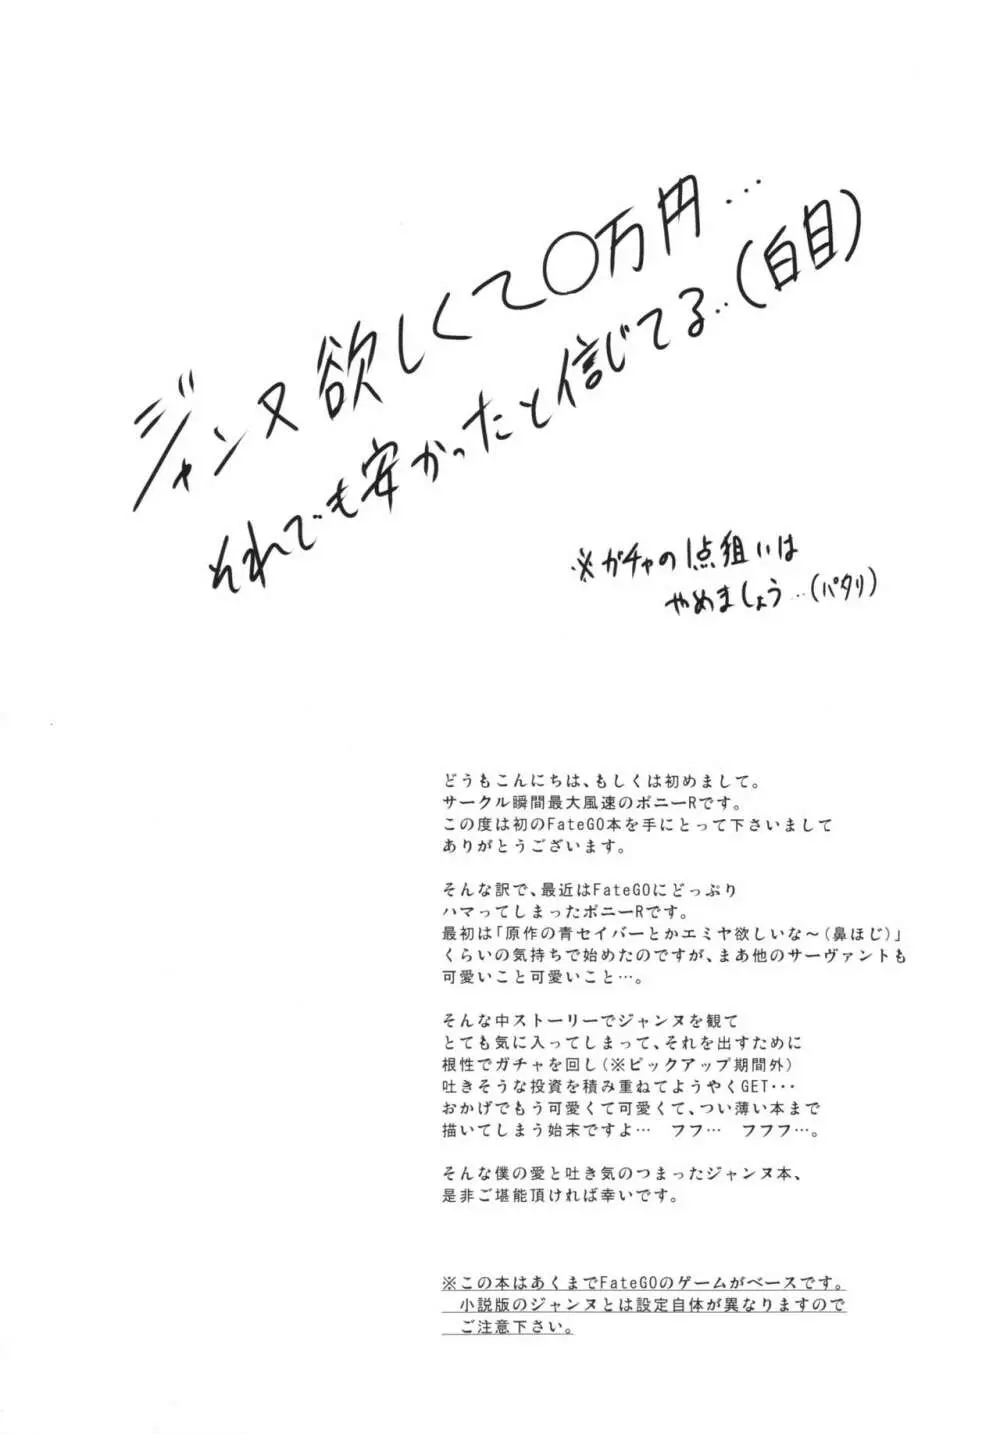 ジャンヌ欲しくて〇万円…
それでも安かったと信じてる…(白目)
※ガチャの1点狙いは
やめましょう…(パタリ)
どうもこんにちは、もしくは初めまして。
サークル瞬間最大風速のボニーRです。
この度は初のFateGO本を手にとって下さいまして
ありがとうございます。
そんな訳で、最近はFateGOにどっぷり
ハマってしまったボニーRです。
最初は「原作の青セイバーとかエミヤ欲しいな～(鼻ほじ)」
くらいの気持ちで始めたのですが、まあ他のサーヴァントも
可愛いこと可愛いこと…。
そんな中ストーリーでジャンヌを観て
とても気に入ってしまって、それを出すために
根性でガチャを回し(※ピックアップ期間外)
吐きそうな投資を積み重ねてようやくGET・・・
おかげでもう可愛くて可愛くて、つい薄い本まで
描いてしまう始末ですよ…　フフ…　フフフ…。
そんな僕の愛と吐き気のつまったジャンヌ本、
是非ご堪能頂ければ幸いです。
※この本はあくまでFateGOのゲームがベースです。
小説版のジャンヌとは設定自体が異なりますので
ご注意下さい。